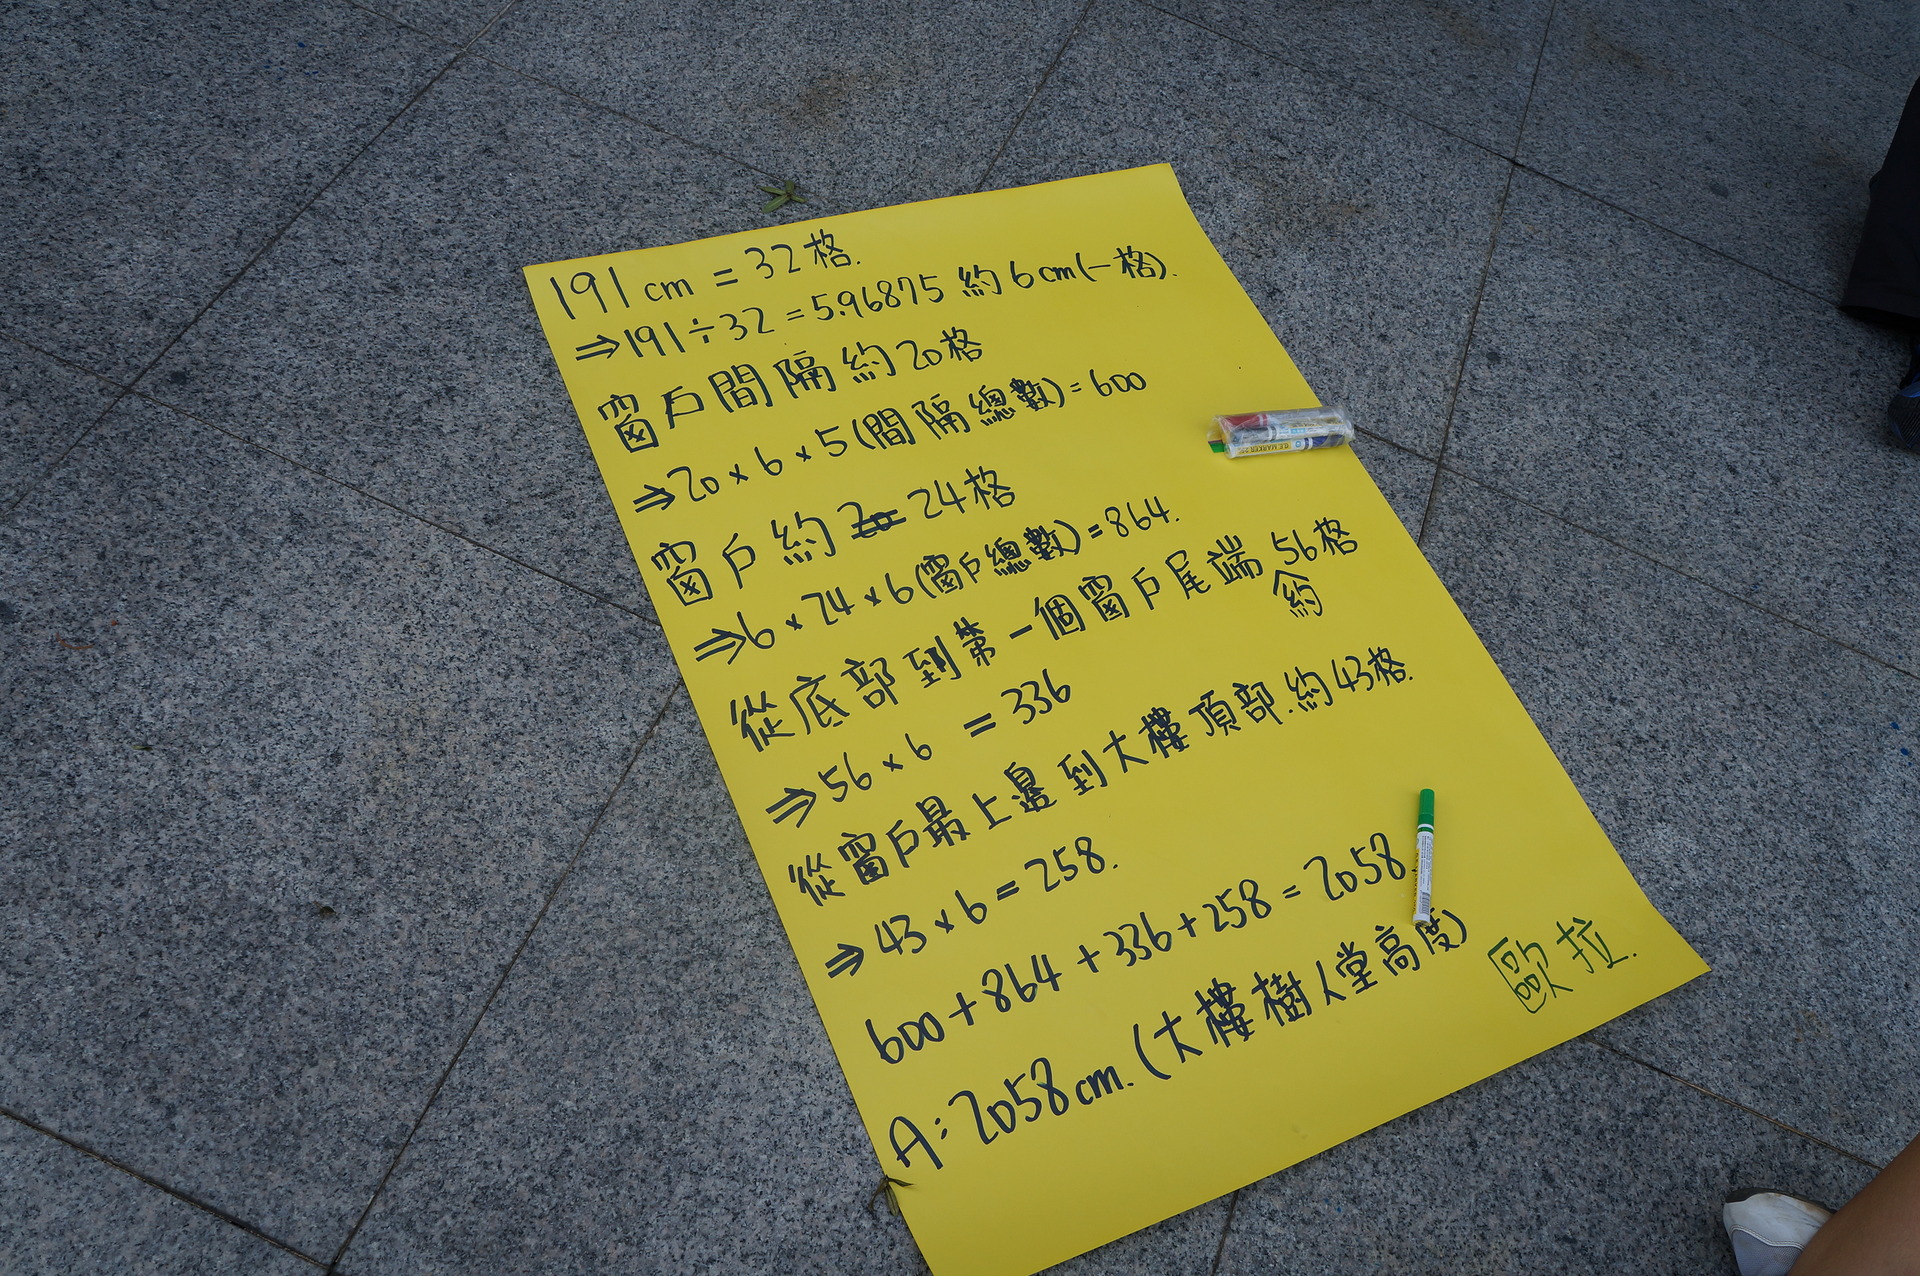 191cm = 32格.
⇒191÷32 = 5.96875 約6cm(一格).
窗戶間隔約20格
⇒20×6×5(間隔總數)=600
窗戶約 24格
⇒6×24×6(窗戶總數)=864.
從底部到第一個窗戶尾端 約56格
⇒56×6 = 336
從窗戶最上邊到大樓頂部.約43格.
⇒43×6=258.
600+864+336+258=2058
A:2058cm.(大樓樹人堂高度)
歐拉.